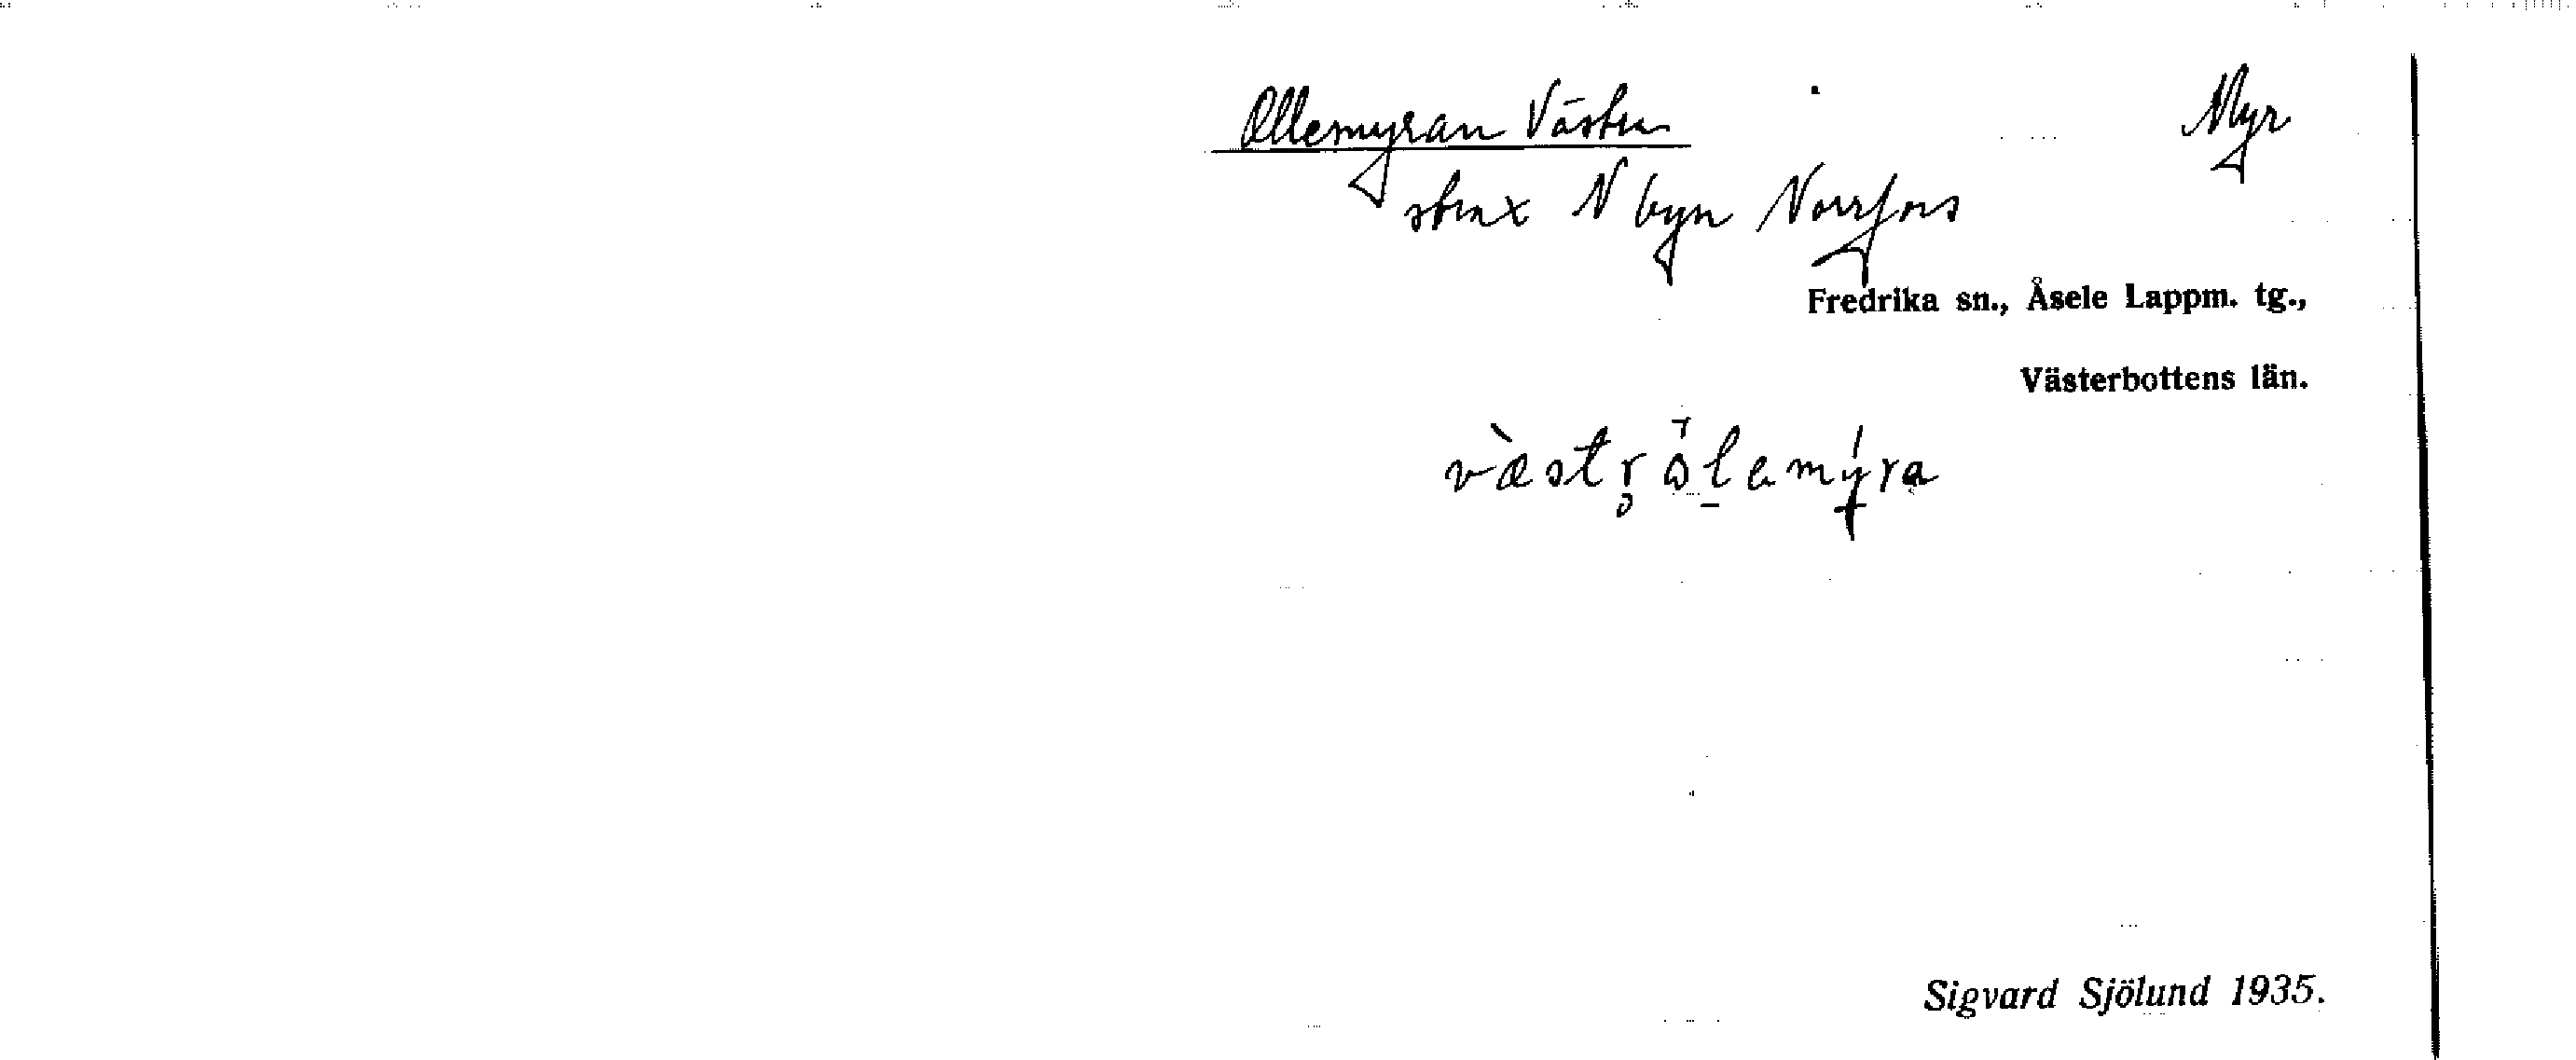 Ollemyran Västra Myr
strax N byn Norrfors
Fredrika sn., Åsele Lappm. tg.,
Västerbottens län.
væstr̥ ölamýra
Sigvard Sjölund 1935.